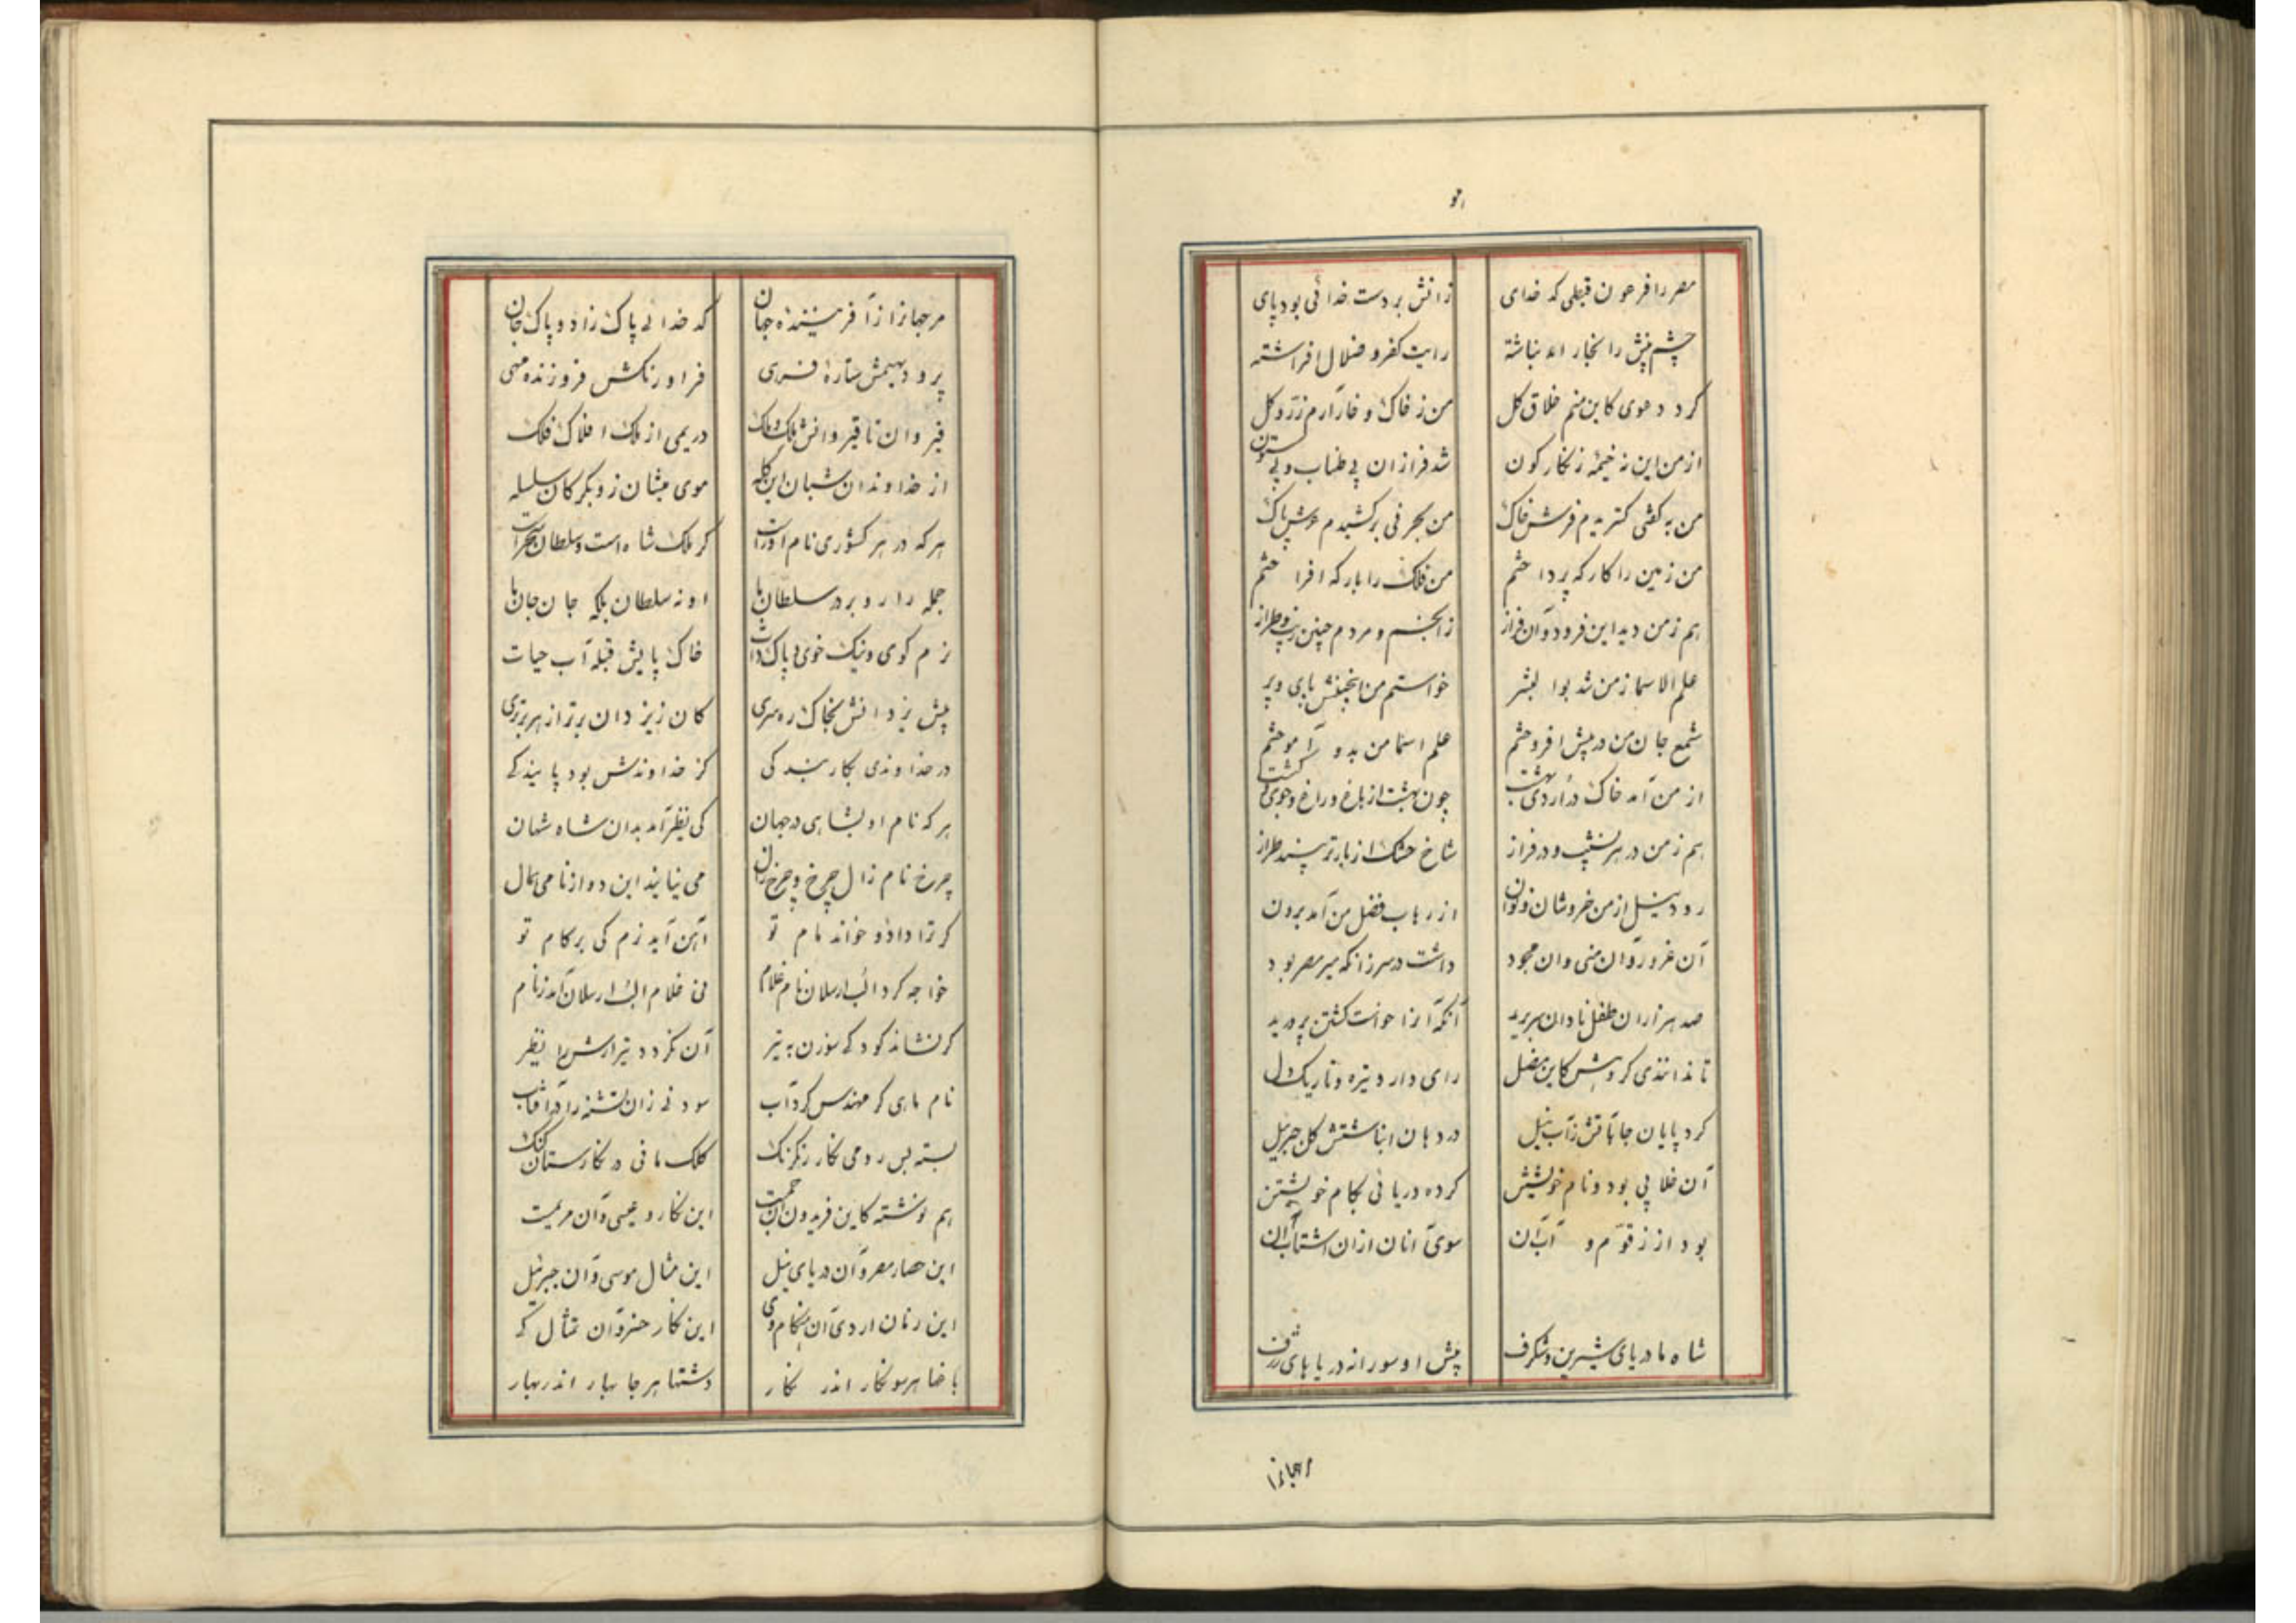 مصر را فرعون قبطی کدخدای
زانش بر دست خدائی بود پای
چشم بینش را بخار انباشته
رایت کفر و ضلال افراشته
کرد دعوی کاین منم خلاق کل
من ز خاک و خار آرم زر و کل
از من این نه خیمه زنکارکون
شد فرازان بی طناب و بی ستون
من به کفی کستریدم فرش خاک
من بحرفی برکشیدم عرش پاک
من زمین را کارکه پرداختم
من فلک را بارکه افراختم
هم ز من دید این فرود و آن فراز
ز انجم و مردم چنین زیب و طراز
علم الاسما ز من شد بوالبشر
خواستم من بی پای و پر
شمع جان من در پیش افروختم
علم اسما من بدو آموختم
از من آمد خاک در اردی بهشت
چون بهشت از باغ و راغ و جوی و کشت
هم ز من در هر نشیب و در فراز
شاخ خشک از بار تر طراز
رود نیل از من خروشان
از فضل من آمد برون
آن غرور و آن منی و آن
داشت در سر زانکه میر مصر بود
صد هزاران طفل نادان سر برید
آنکه آنرا خواست کشتن پرورید
تا ندانندی کروهش کاین مضل
رای دارد تیره و تاریک دل
کرد پایان جانب آتش ز آب نیل
در دهان انباشتش کل جبریل
آن خلابی بود و نام خویشتن
کرده دریائی بکام خویشتن
بود از زقوم و آب آن
سوی آنان از آن اشتاب آن
شاه ما دریای شیرین و شکرف
پیش او سورانه دریاهای ژرف
مرجهانرا
مر جهانرا از آفریننده جهان
کدخدائی پاک زاد و پاک جان
بر دیهیمش ستاره فرهی
فر اورنکش فروزنده مهی
قیروان تا قیروانش ملک و ملک
در یمی از ملک افلاک فلک
از خداوندان شبان این کله
موی میشان زو بکرکان سلسله
هر که در هر کشوری نام آور است
کر ملک شاه است و سلطان سنجر است
جمله را رو بر در سلطان ما
او نه سلطان بلکه جان جان ما
نرم کوی و نیک خوی و پاک ذات
خاک پایش قبله آب حیات
پیش یزدانش بخاک ره سری
کان ز یزدان برتر از هر برتری
در خداوندی بکار بندکی
کز خداوندش بود پایندکی
هر که نام او بشاهی در جهان
کی نظر آمد بدان شاه شهان
چرخ نام زال چرخ و چرخ زال
می نیایند این دو از نامی همال
کر ترا داود خواند مام تو
آهن آید نرم کی بر کام تو
خواجه کرد الب ارسلان نام غلام
نی غلام الب ارسلان آمد ز نام
کر نشاند کودکی سوزن به تیر
آن نکردد تیر آرش را نظیر
نام ماری کر مهندس کرد آب
سود نی زان تشنه را در آفتاب
بسته بس رومی نکار رنکرنک
کلک مانی در نکارستان کنک
هم نوشته کاین فریدون آن جمست
این نکار عیسی و آن مریمست
این حصار مصر و آن دریای نیل
این مثال موسی و آن جبرئیل
این زمان اردی آن هنکام دی
این نکار خسرو آن تمثال کی
باغها هر سو نکار اندر نکار
دشتها هر جا بهار اندر بهار